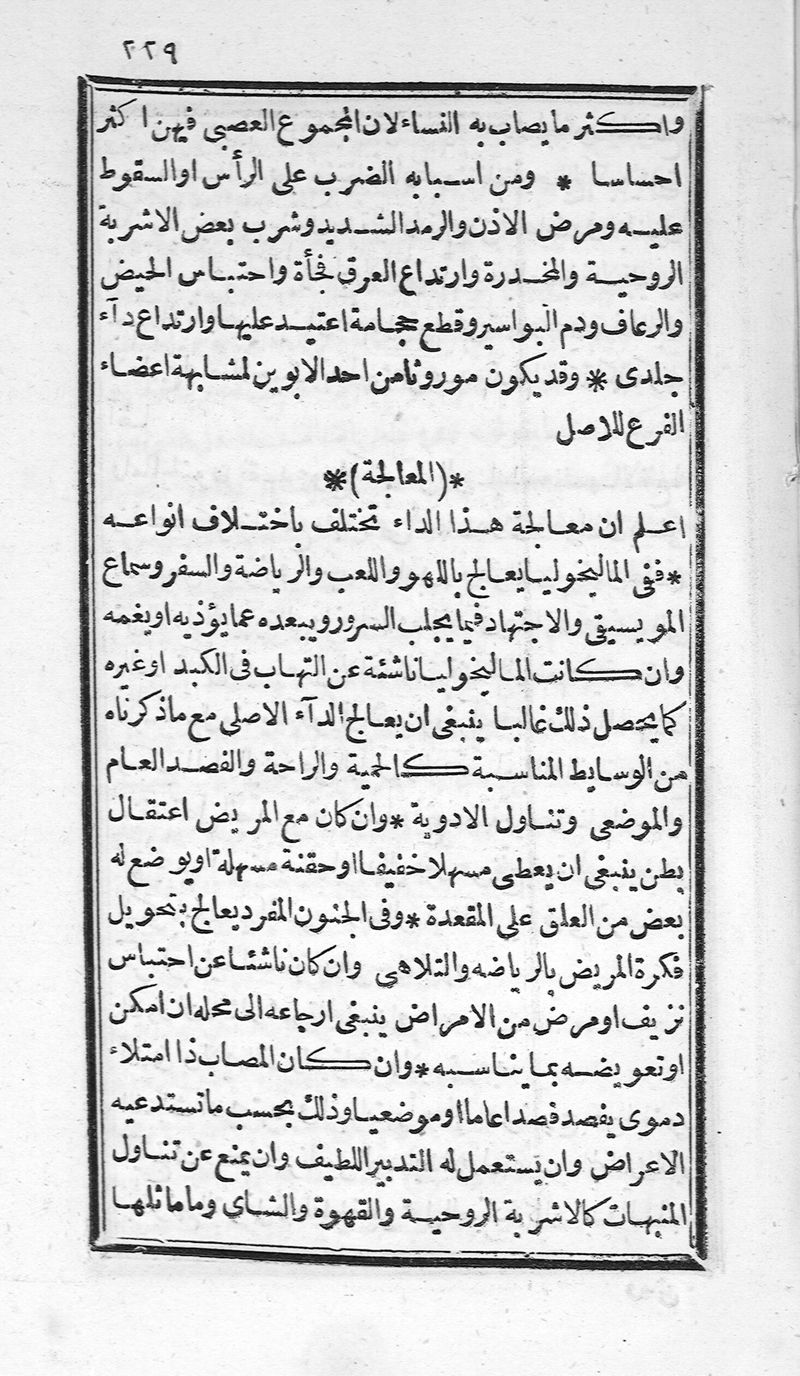 ٢٢٩
واكثر ما يصاب به النساء لان المجموع العصبى فيهن اكثر
احساسا * ومن اسبابه الضرب على الرأس او السقوط
عليه ومرض الاذن والرمد الشديد وشرب بعض الاشربة
الروحية والمخدرة وارتداع العرق فجأة واحتباس الحيض
والرعاف ودم البواسير وقطع حجامة اعتيد عليها وارتداع دآء
جلدى * وقد يكون موروثا من احد الابوين لمشابهة اعضاء
الفرع للاصل
*(المعالجة)*
اعلم ان معالجة هذا الداء تختلف باختلاف انواعه
* ففى الماليخوليا يعالج باللهو واللعب والرياضة والسفر وسماع
المويسيقى والاجتهاد فيما يجلب السرور ويبعده عما يؤذيه او يغمه
وان كانت الماليخوليا ناشئة عن التهاب فى الكبد او غيره
كما يحصل ذلك غالبا ينبغى ان يعالج الدآء الاصلى مع ما ذكرناه
من الوسايط المناسبة كالحمية والراحة والفصد العام
والموضعى وتناول الادوية * وان كان مع المريض اعتقال
بطن ينبغى ان يعطى مسهلا خفيفا او حقنة مسهلة او يوضع له
بعض من العلق على المقعدة * وفى الجنون المفرد يعالج بتحويل
فكرة المريض بالرياضه والتلاهى وان كان ناشئا عن احتباس
نزيف او مرض من الامراض ينبغى ارجاعه الى محله ان امكن
او تعويضه بما يناسبه * وان كان المصاب ذا امتلاء
دموى يفصد فصدا عاما او موضعيا وذلك بحسب ما تستدعيه
الاعراض وان يستعمل له التدبير اللطيف وان يمنع عن تناول
المنبهات كالاشربة الروحية والقهوة والشاى وما ماثلها